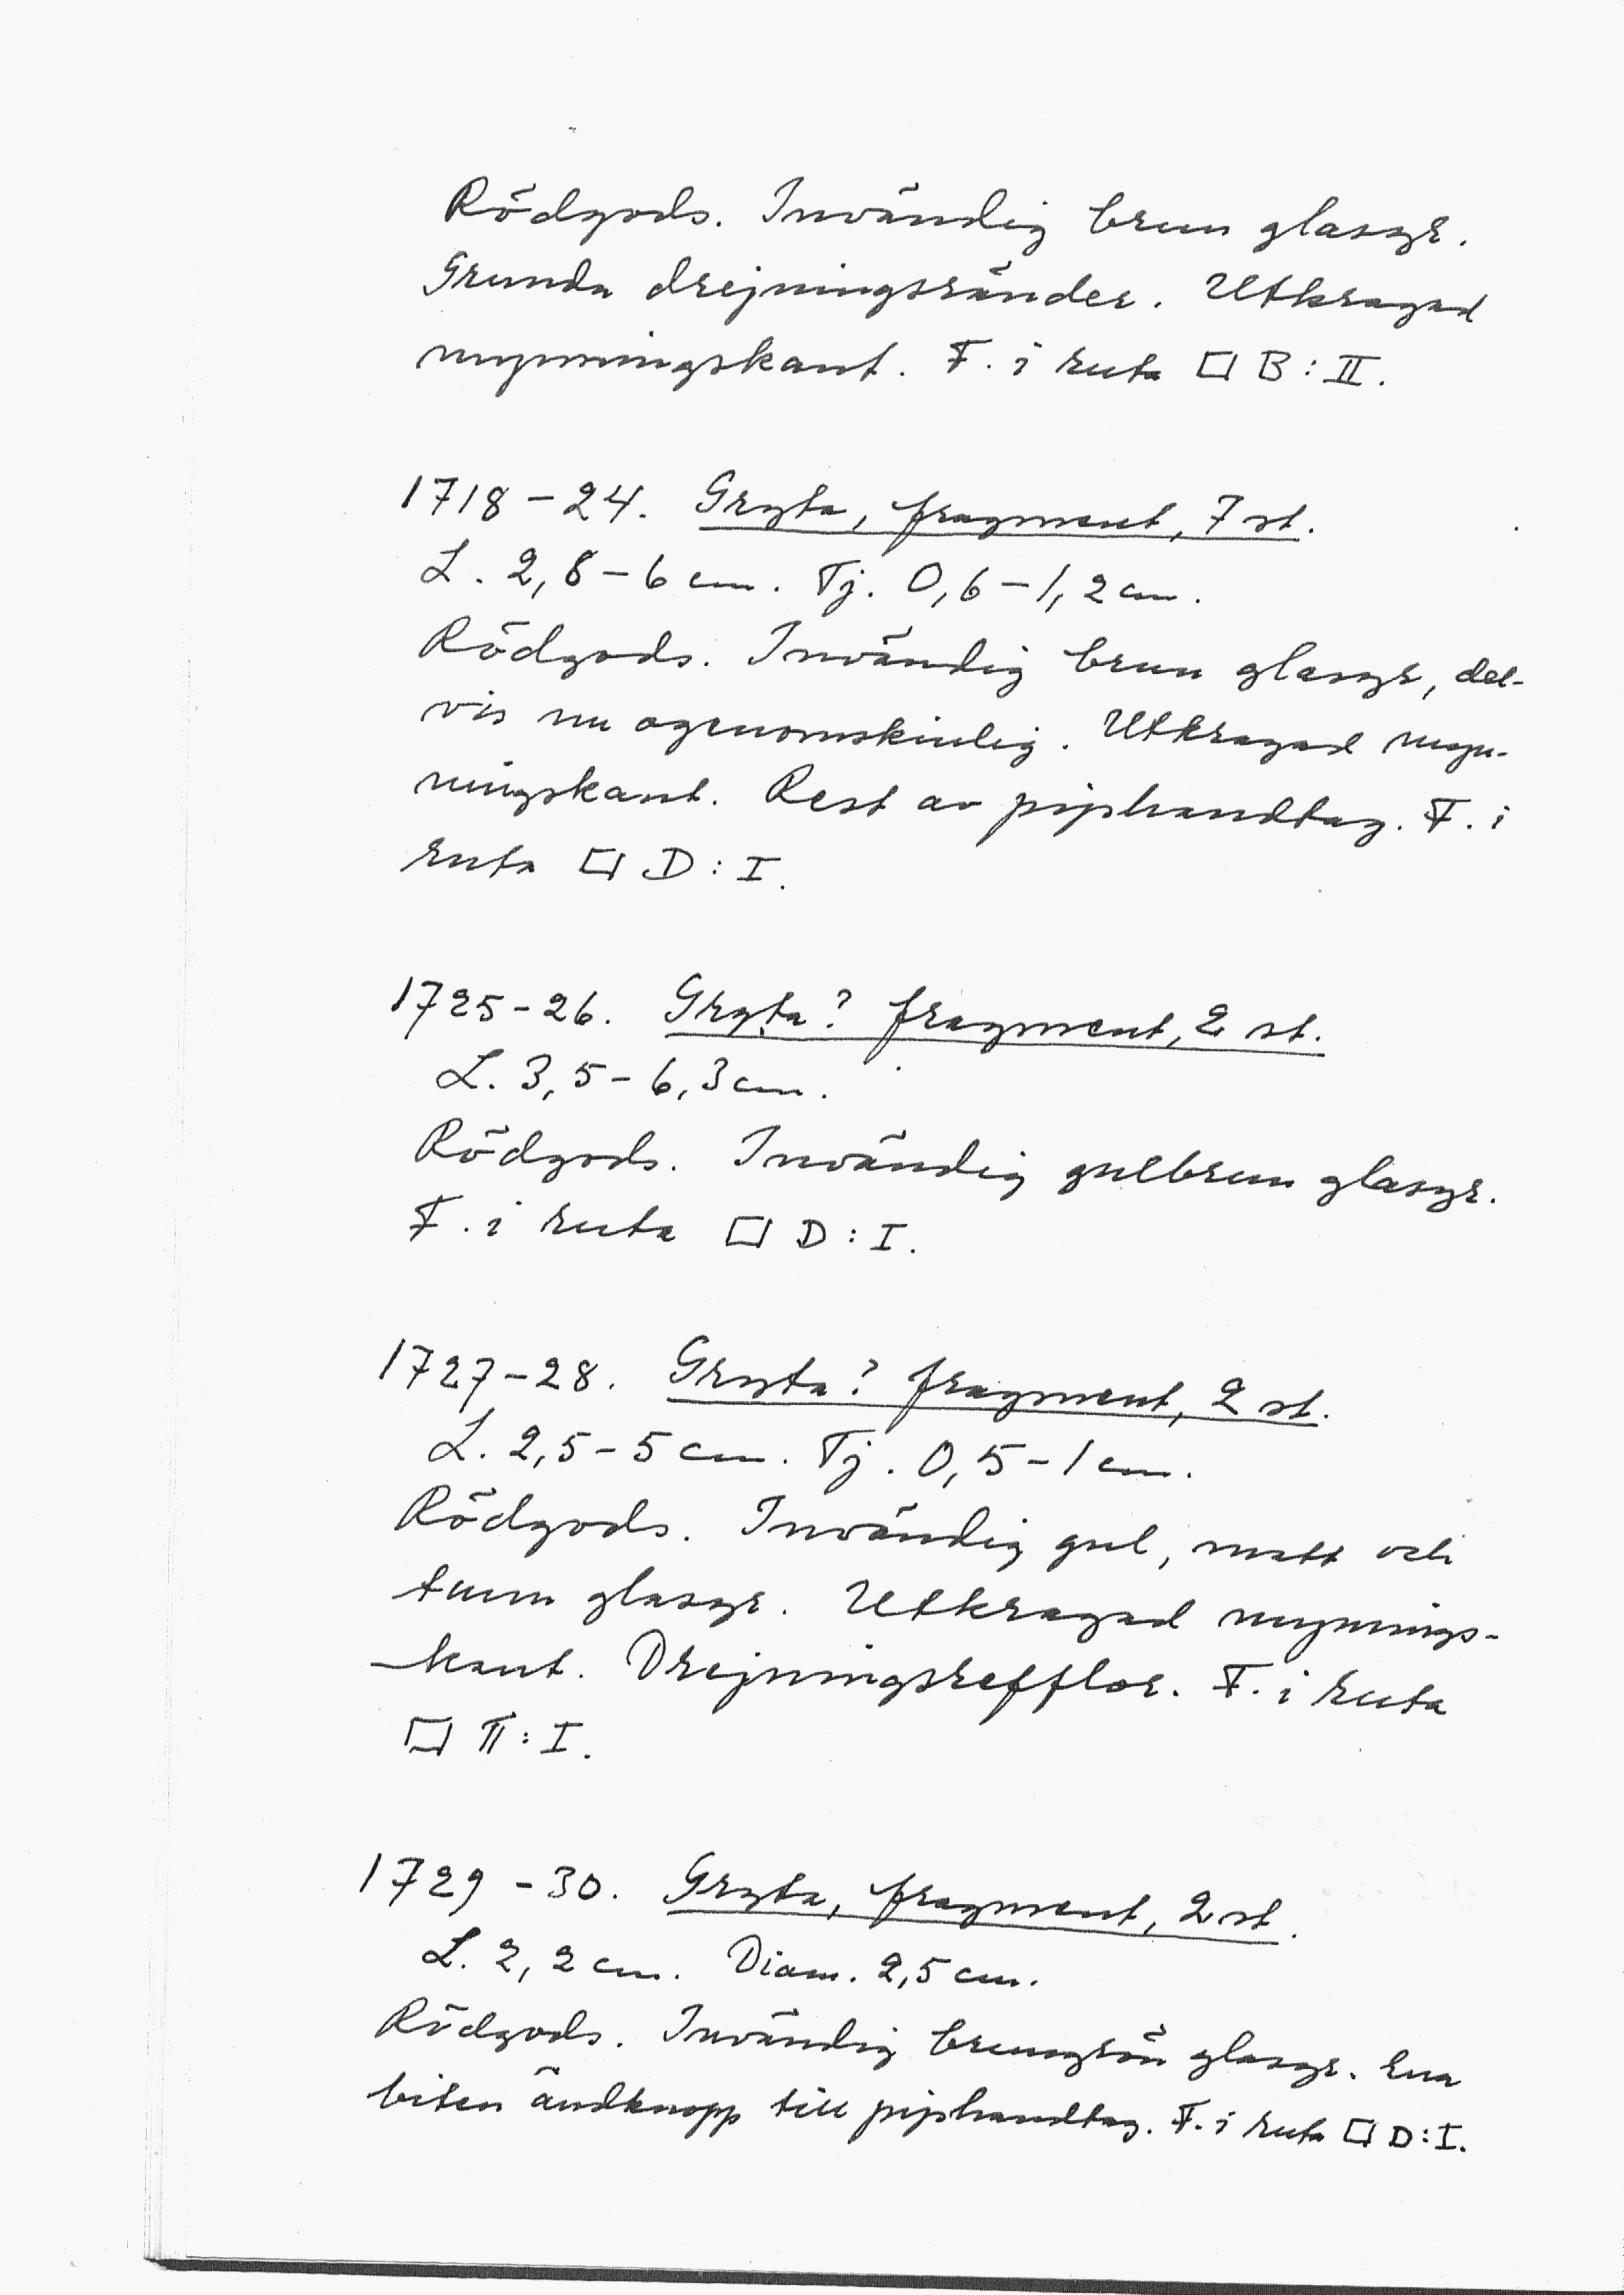 Rödgods. Invändig brun glasyr.
Grunda drejningsränder. Utkragad
mynningskant. F. i ruta □ B : II.
1718 - 24. Gryta, fragment, 7 st.
L. 2,8 - 6 cm. Tj. 0,6 - 1,2 cm.
Rödgods. Invändig brun glasyr, del-
vis nu ogenomskinlig. Utkragad myn-
ningskant. Rest av piphandtag. F. i
ruta □ D : I.
1725 - 26. Gryta? fragment, 2 st.
L. 3,5 - 6,3 cm.
Rödgods. Invändig gulbrun glasyr.
F. i ruta □ D : I.
1727 - 28. Gryta? fragment, 2 st.
L. 2,5 - 5 cm. Tj. 0,5 - 1 cm.
Rödgods. Invändig gul, matt och
tunn glasyr. Utkragad mynnings-
-kant. Drejningsrefflor. F. i ruta
□ π : I.
1729 - 30. Gryta, fragment, 2 st.
L. 2,2 cm. Diam. 2,5 cm.
Rödgods. Invändig brungrön glasyr. Ena
biten ändknopp till piphandtag. F. i ruta □ D : I.